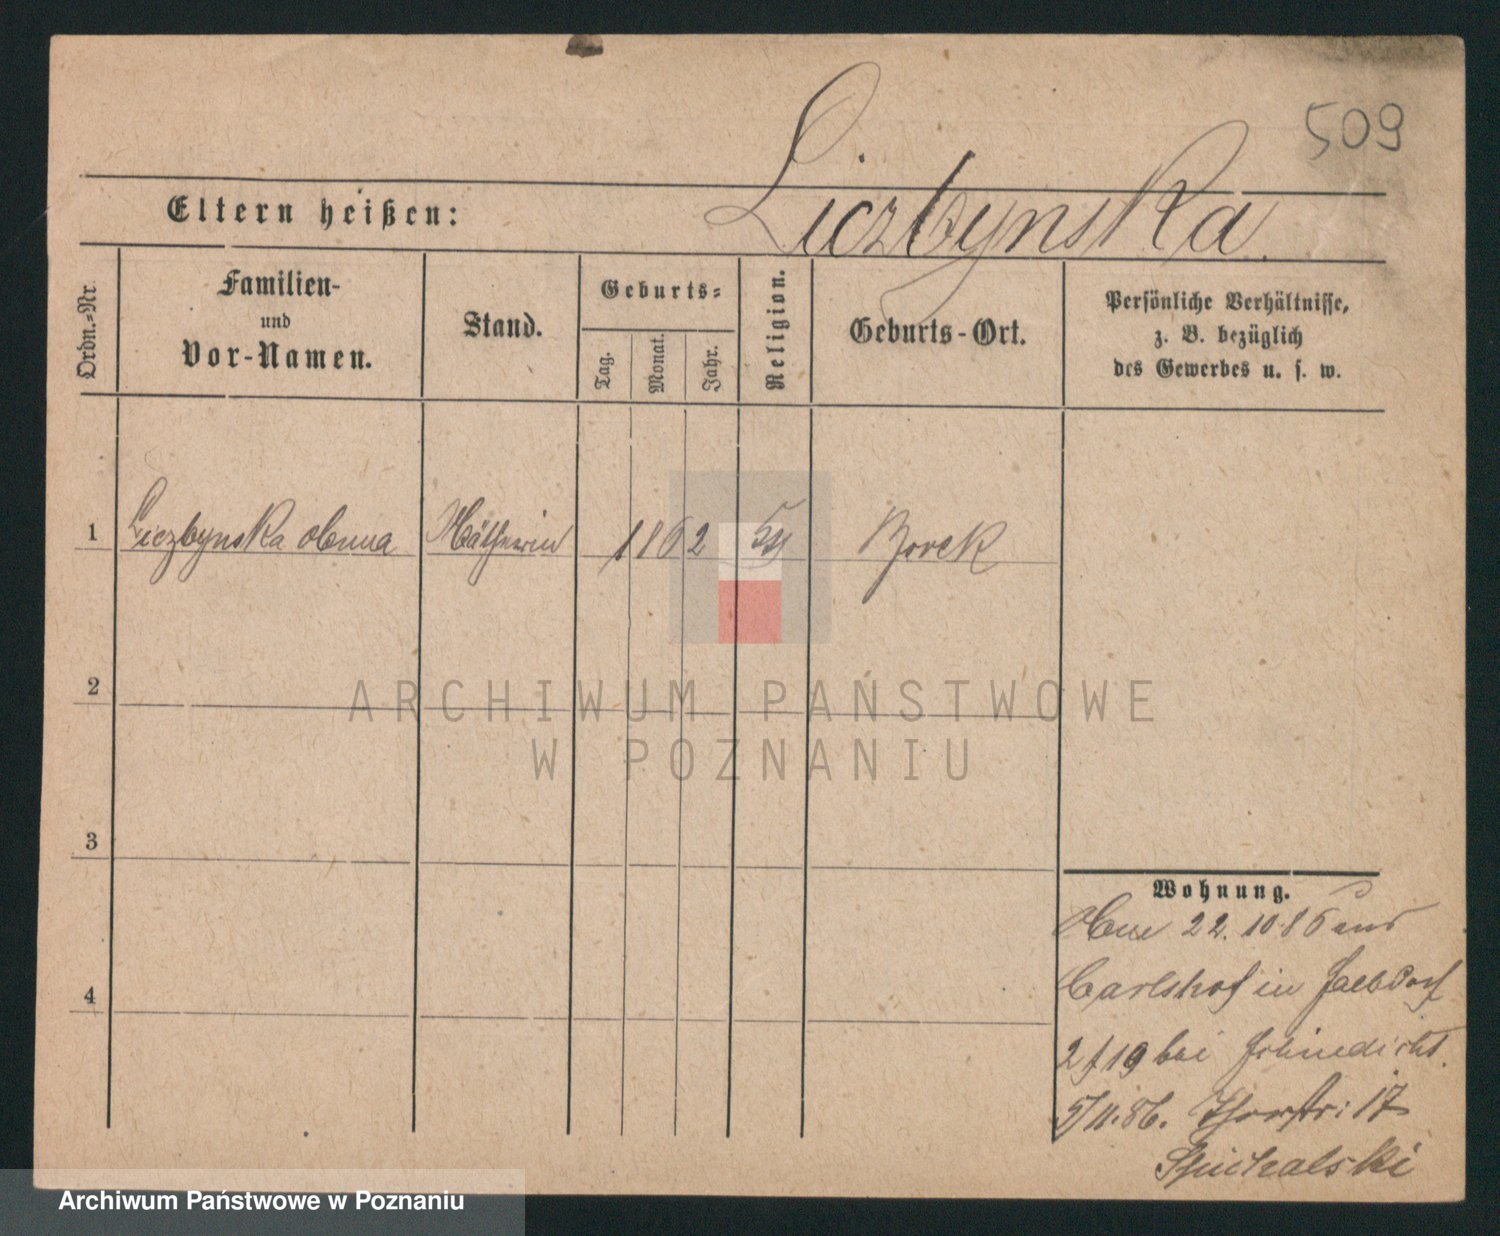 509
Liczbynska
Eltern heißen:
Ordn.=Nr.
Familien-
und
Vor-Namen.
Stand.
Geburts=
Tag.
Monat.
Jahr.
Religion.
Geburts-Ort.
Persönliche Verhältnisse,
z. B. bezüglich
des Gewerbes u. s. w.
1 Liczbynska Anna Nätherin 1862 Borek
2
3
4
ARCHIWUM PAŃSTWOWE
W POZNANIU
Wohnung.
22. 10 86 aus
Carlshof in
2/19 bei
5/11. 86. Thorstr: 17
Archiwum Państwowe w Poznaniu